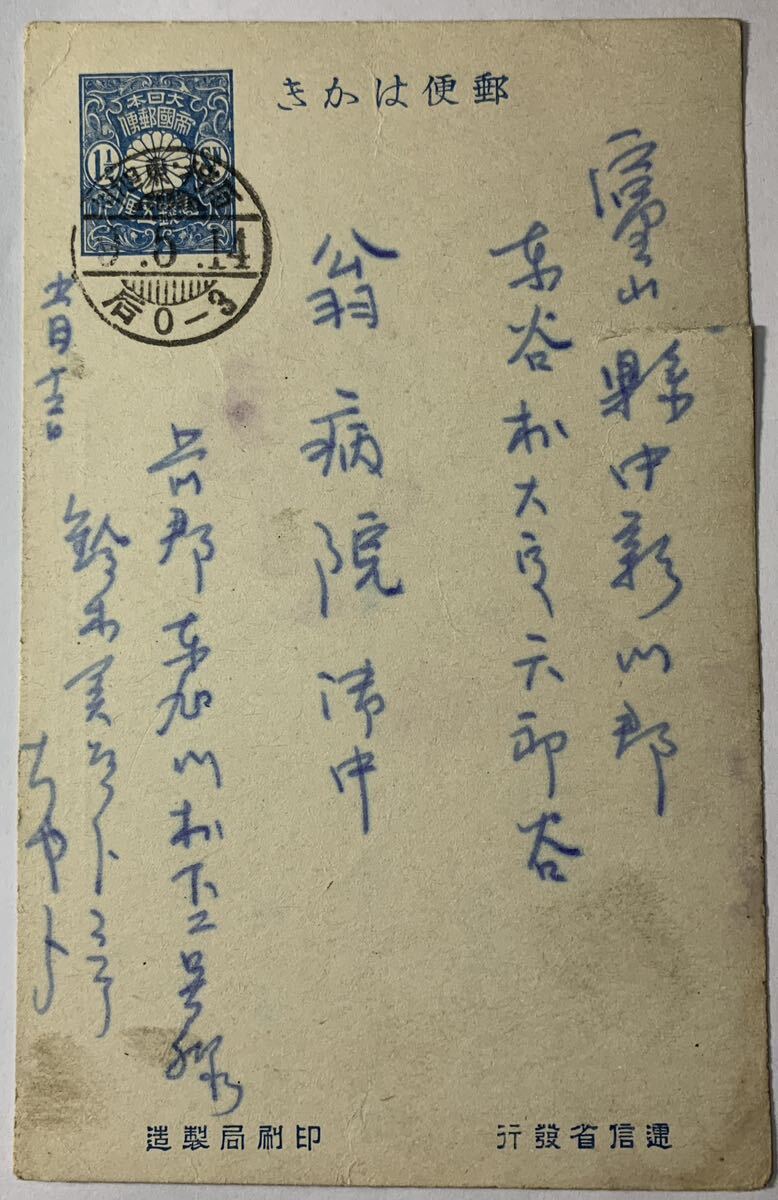 郵便はかき
大日本
帝國郵便
1½ SN
.5.14
后0-3
富山縣中新川郡
東谷村大字六郎谷
翁病院 御中
五月十三日
上川郡東旭川村下二号線
鈴木
逓信省發行
印刷局製造